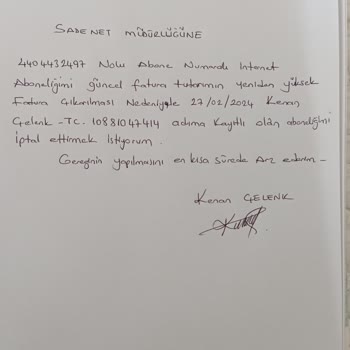 SADENET MÜDÜRLÜĞÜNE
4404432497 Nolu Abone Numaralı Internet
Aboneliğimi güncel fatura tutarımın yeniden yüksek
Fatura Çıkarılması Nedeniyle 27/02/2024 Kenan
Çelenk -TC. 10881047414 adıma Kayıtlı olan aboneliğimi
İptal ettirmek İstiyorum.
Gereğinin yapılmasını en kısa sürede Arz ederim -
Kenan ÇELENK